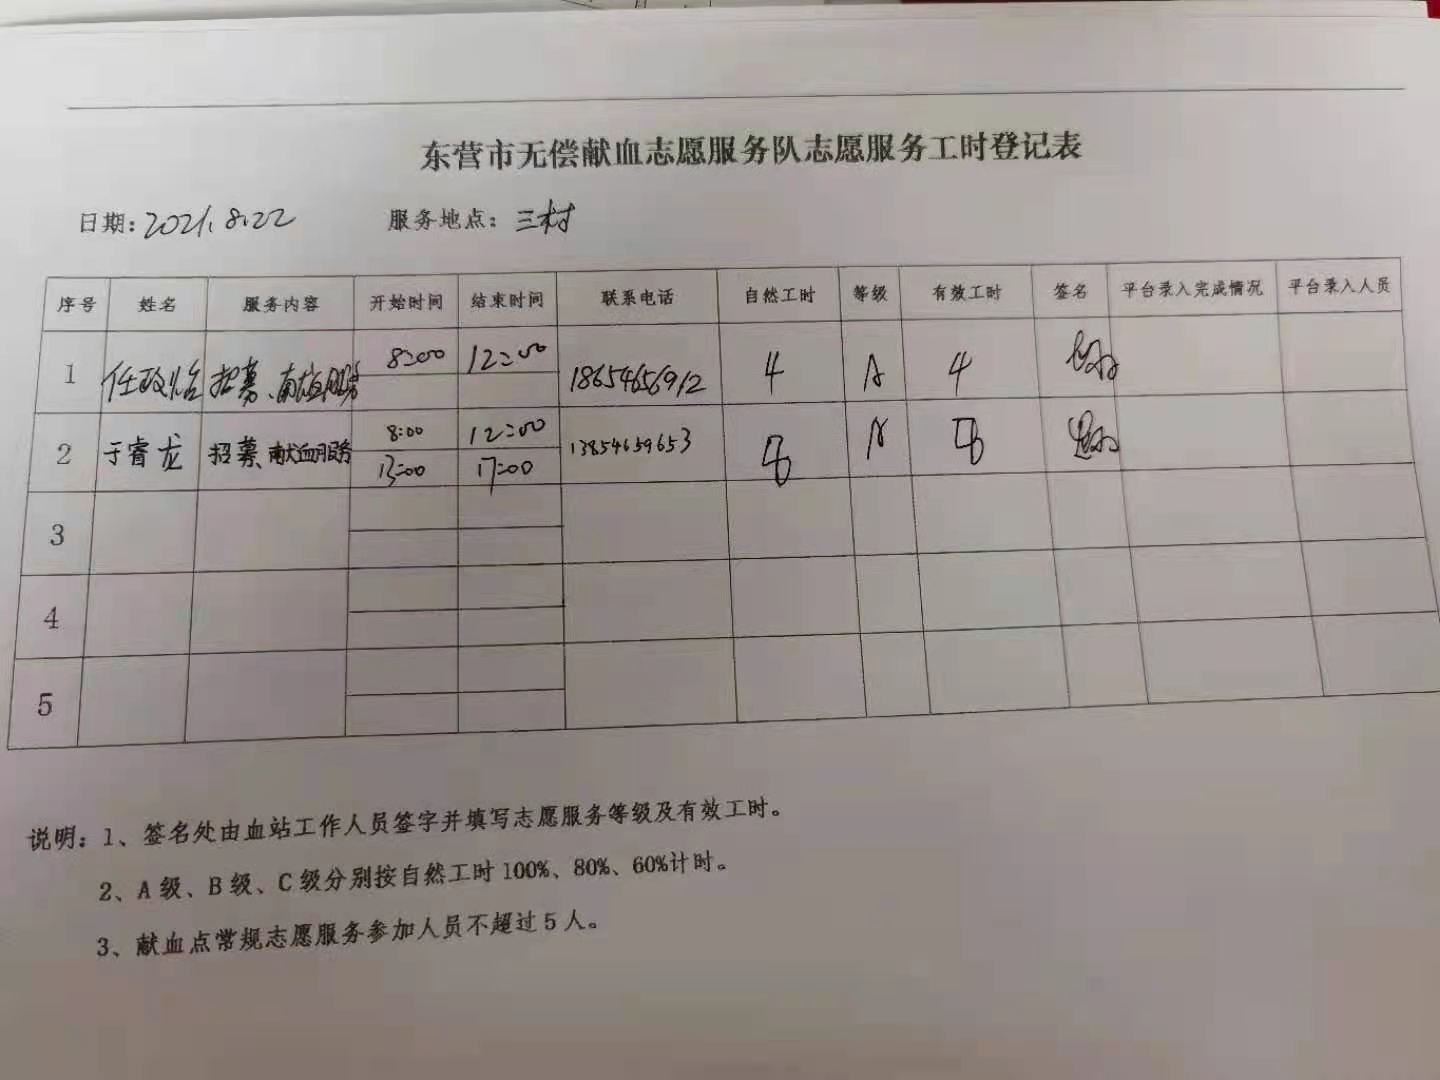 东营市无偿献血志愿服务队志愿服务工时登记表
日期: 2021.8.22 服务地点: 三村
序号 姓名 服务内容 开始时间 结束时间 联系电话 自然工时 等级 有效工时 签名 平台录入完成情况 平台录入人员
1 任政怡 招募、献血服务 8:00 12:00 18654656912 4 A 4
2 于睿龙 招募、献血服务 8:00 12:00 13854659653 8 A 8
13:00 17:00
3
4
5
说明: 1、签名处由血站工作人员签字并填写志愿服务等级及有效工时。
2、A 级、B 级、C 级分别按自然工时 100%、80%、60%计时。
3、献血点常规志愿服务参加人员不超过 5 人。